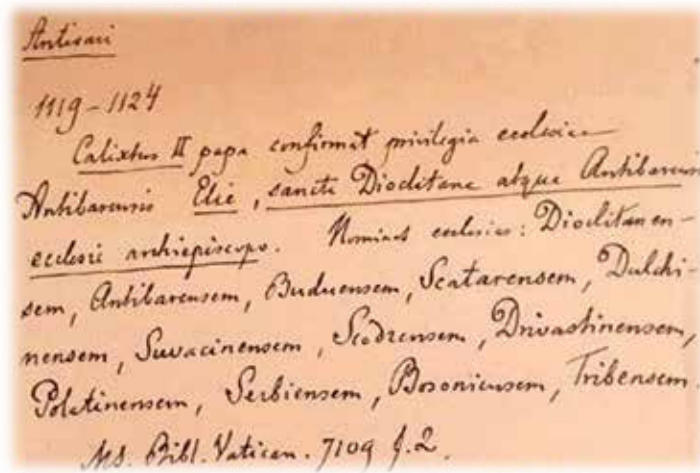 Antivari
1119-1124
Calixtus II papa confirmat privilegia ecclesiae
Antibarensis Elie, sancte Dioclitane atque Antibarensi
ecclesie archiepiscopo. Nominat ecclesias: Dioclitanen-
sem, Antibarensem, Buduensem, Scatarensem, Dulchi-
nensem, Suvacinensem, Scodrensem, Drivastinensem,
Polatinensem, Serbiensem, Bosoniensem, Tribensem.
Ms. Bibl. Vatican. 7109 f. 2.